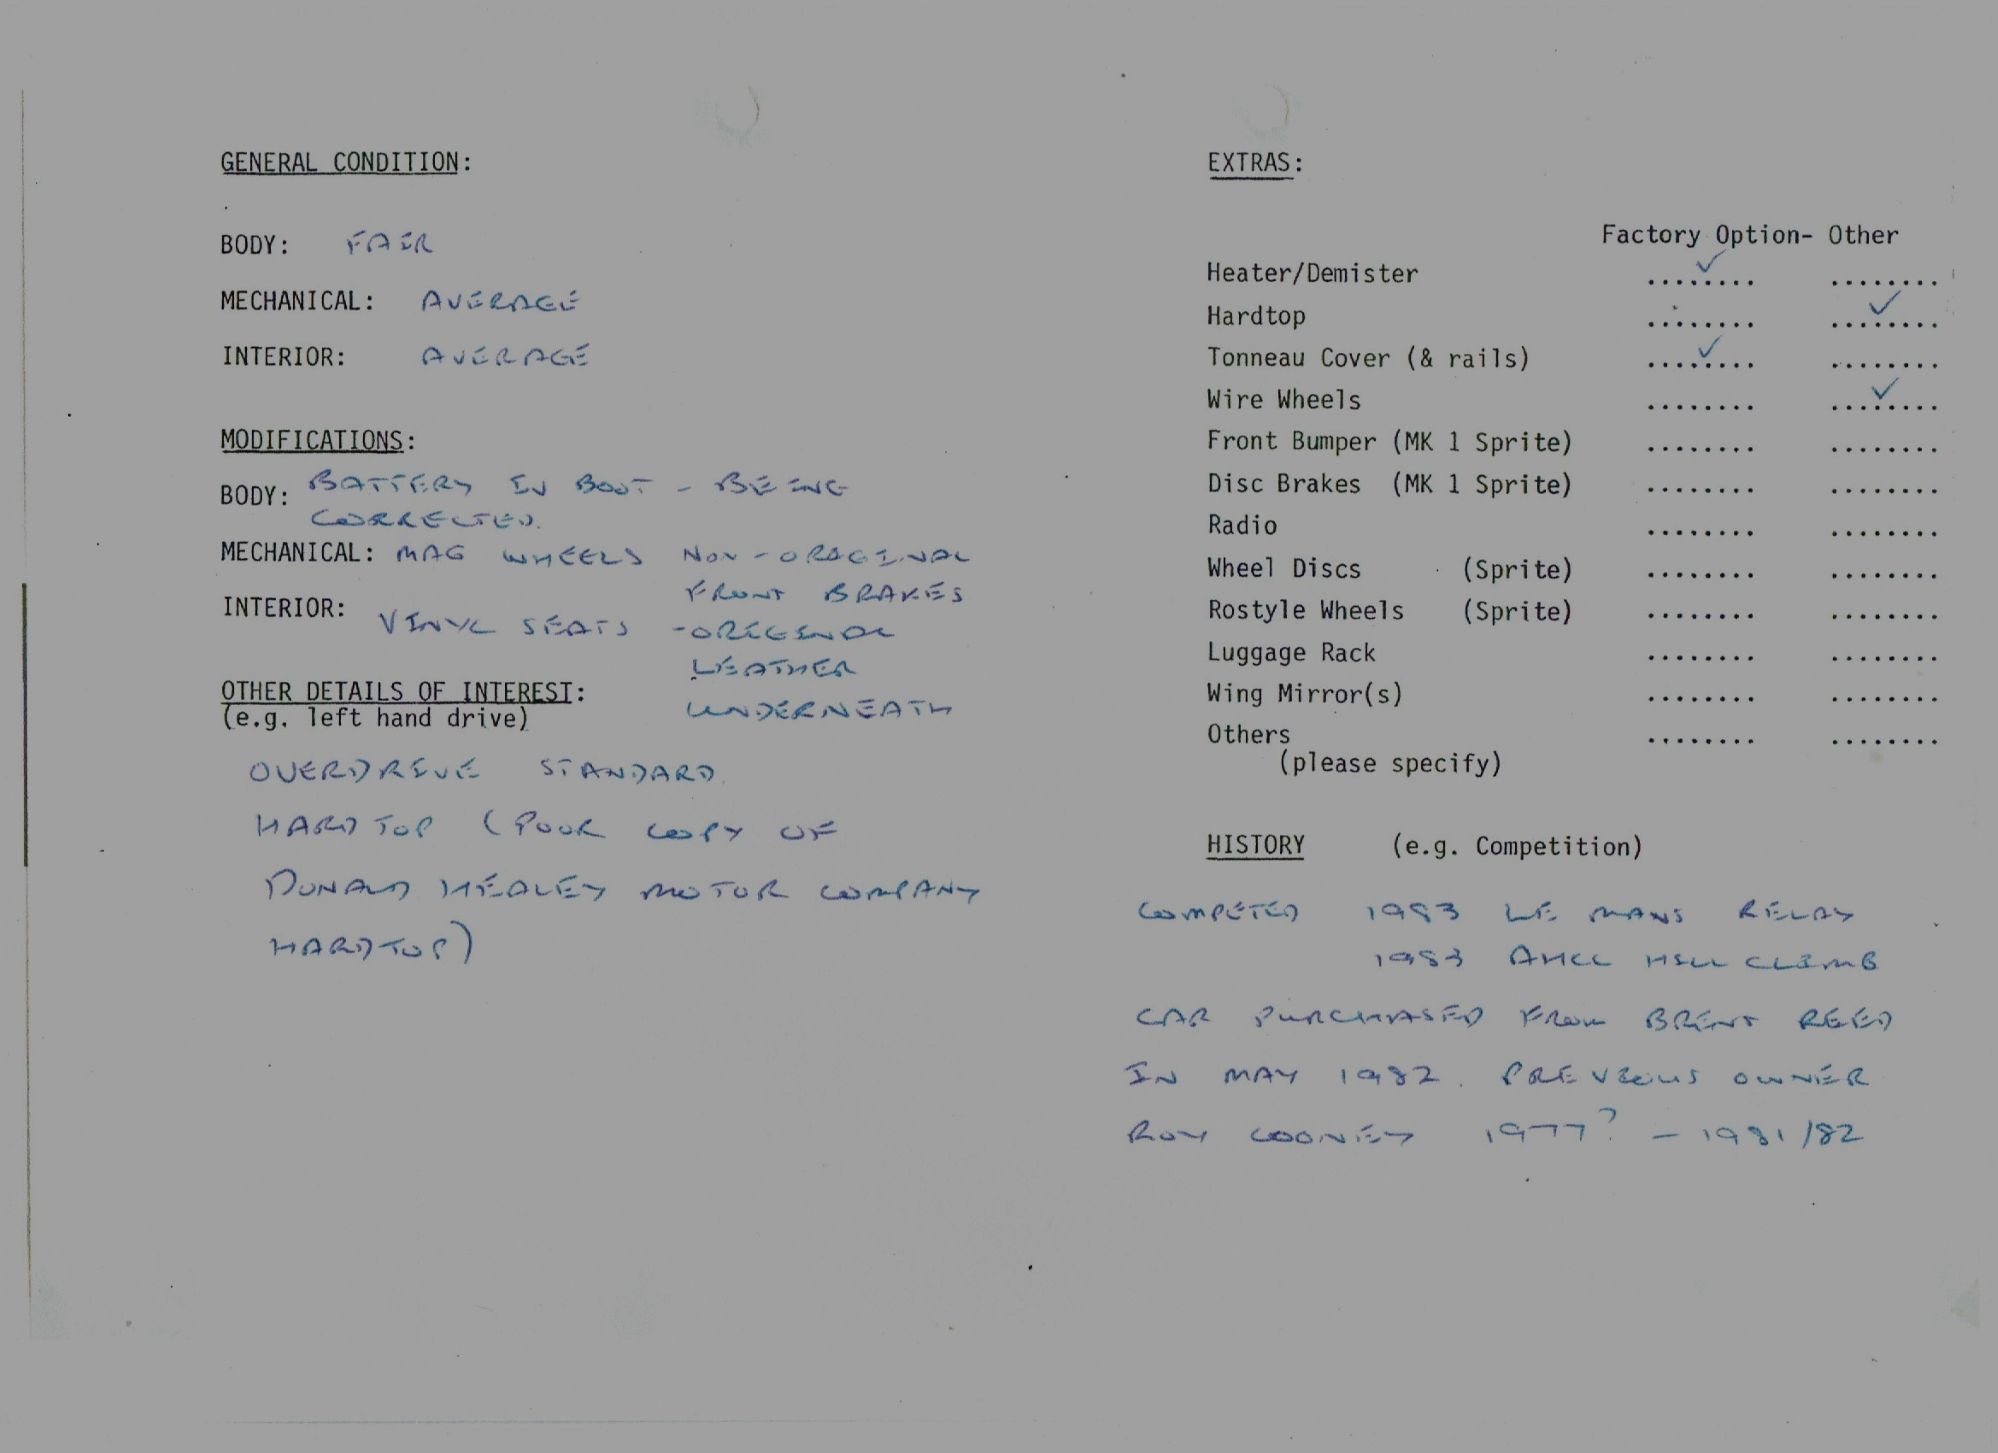 GENERAL CONDITION:
BODY: FAIR
MECHANICAL: AVERAGE
INTERIOR: AVERAGE
MODIFICATIONS:
BODY: BATTERY IN BOOT - BEING
CORRECTED.
MECHANICAL: MAG WHEELS NON-ORIGINAL
FRONT BRAKES
INTERIOR: VINYL SEATS -ORIGINAL
LEATHER
UNDERNEATH
OTHER DETAILS OF INTEREST:
(e.g. left hand drive)
OVERDRIVE STANDARD
HARDTOP (POOR COPY OF
DONALD HEALEY MOTOR COMPANY
HARDTOP)
EXTRAS:
Factory Option- Other
Heater/Demister ✓ ........ ........
Hardtop ........ ✓ ........
Tonneau Cover (& rails) ✓ ........ ........
Wire Wheels ........ ✓ ........
Front Bumper (MK 1 Sprite) ........ ........
Disc Brakes (MK 1 Sprite) ........ ........
Radio ........ ........
Wheel Discs (Sprite) ........ ........
Rostyle Wheels (Sprite) ........ ........
Luggage Rack ........ ........
Wing Mirror(s) ........ ........
Others ........ ........
(please specify)
HISTORY (e.g. Competition)
COMPETED 1983 LE MANS RELAY
1983 AHCC HILLCLIMB
CAR PURCHASED FROM BRENT REED
IN MAY 1982. PREVIOUS OWNER
ROY COONEY 1977? - 1981/82